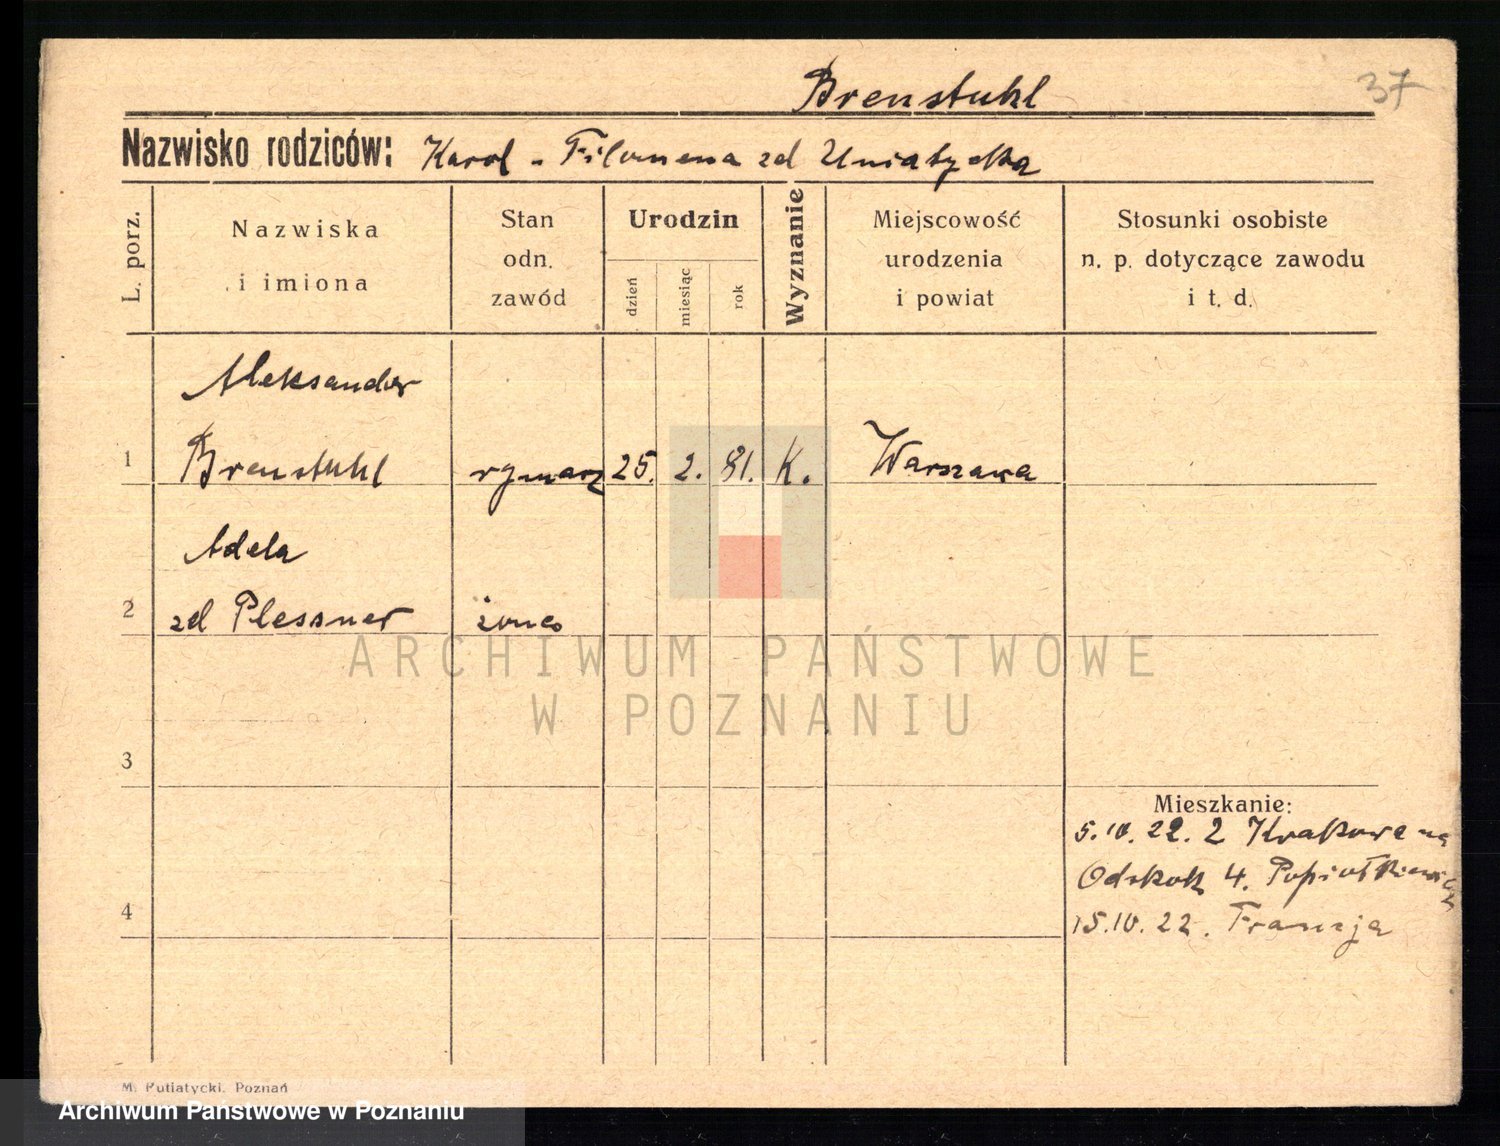 Brenstuhl
37
Nazwisko rodziców: Karol - Filomena zd Uniatycka
L. porz.
Nazwiska
i imiona
Stan
odn.
zawód
Urodzin
dzień
miesiąc
rok
Wyznanie
Miejscowość
urodzenia
i powiat
Stosunki osobiste
n. p. dotyczące zawodu
i t. d.
Aleksander
1 Brenstuhl rymarz 25. 2. 81. K. Warszawa
Adela
2 zd Plessner żona
ARCHIWUM PAŃSTWOWE
W POZNANIU
3
Mieszkanie:
5.10.22. z Krakowa na
Odskok 4. Popiołkiewicz
4
15.10.22. Francja
M. Putiatycki, Poznań
Archiwum Państwowe w Poznaniu